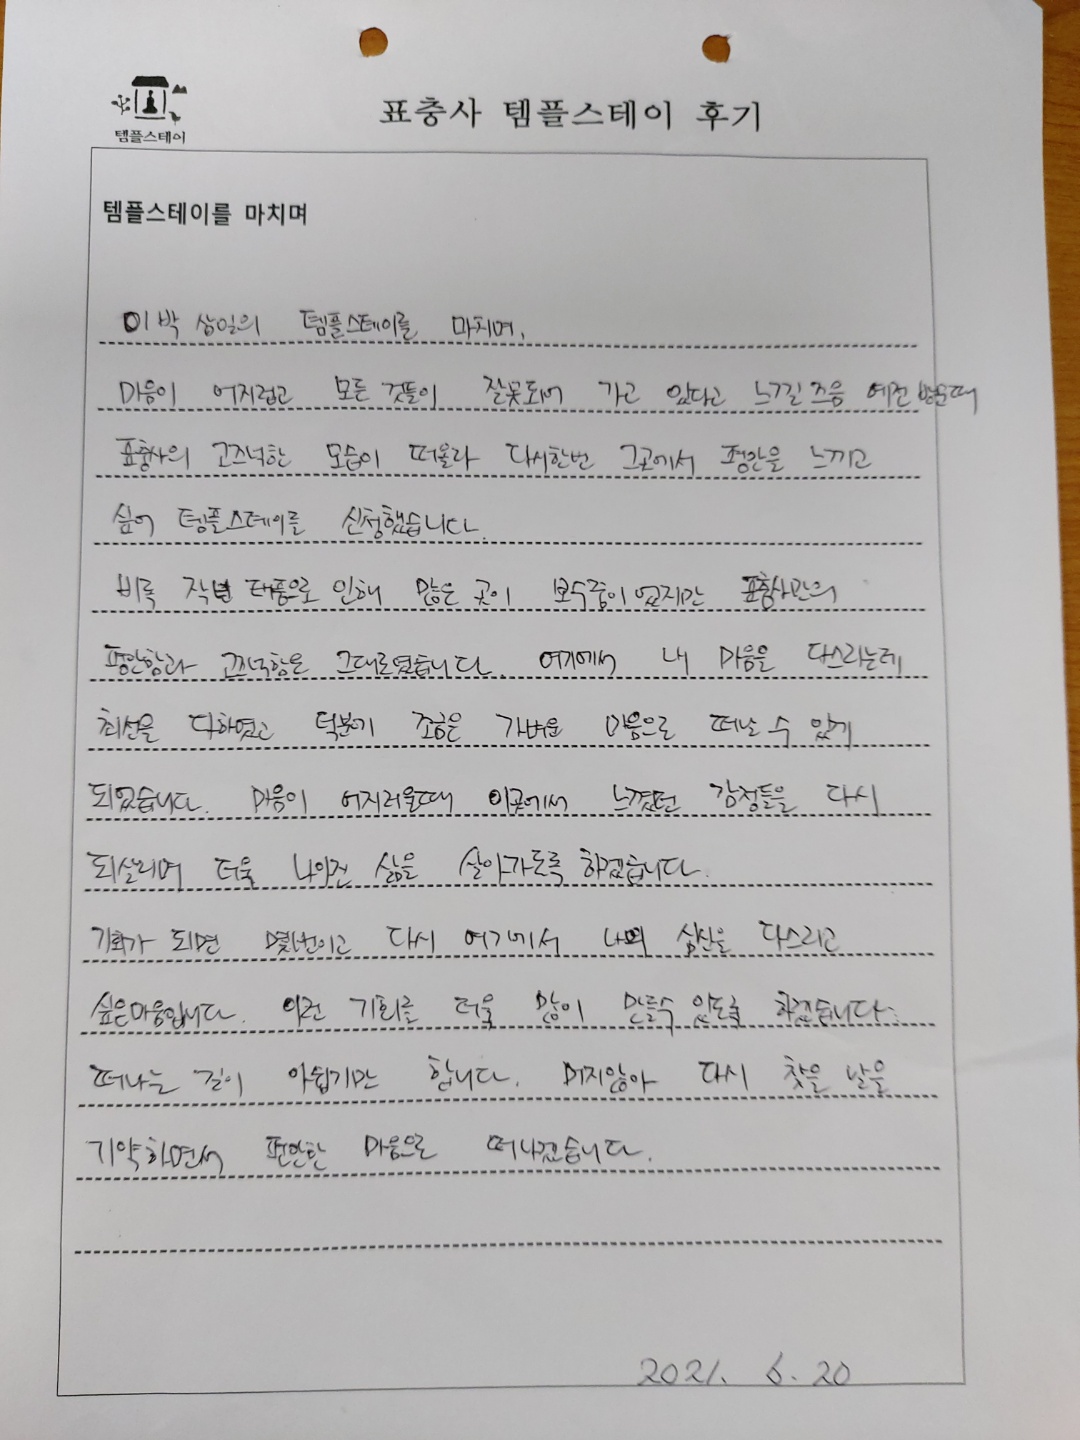 템플스테이
표충사 템플스테이 후기
템플스테이를 마치며
이박 삼일의 템플스테이를 마치며,
마음이 어지럽고 모든 것들이 잘못되어 가고 있다고 느낄즈음 예전 방문때
표충사의 고즈넉한 모습이 떠올라 다시한번 그곳에서 평안을 느끼고
싶어 템플스테이를 신청했습니다.
비록 작년 태풍으로 인해 많은 곳이 보수중이였지만 표충사만의
평안함과 고즈넉함은 그대로였습니다. 여기에서 내 마음을 다스리는데
최선을 다하였고 덕분에 조금은 가벼운 마음으로 떠날 수 있게
되었습니다. 마음이 어지러울때 이곳에서 느꼈던 감정들을 다시
되살리며 더욱 나아진 삶을 살아가도록 하겠습니다.
기회가 되면 몇번이고 다시 여기에서 나의 심신을 다스리고
싶은마음입니다. 이런 기회를 더욱 많이 만들수 있도록 하겠습니다.
떠나는 길이 아쉽기만 합니다. 머지않아 다시 찾을 날을
기약하면서 편안한 마음으로 떠나겠습니다.
2021. 6. 20